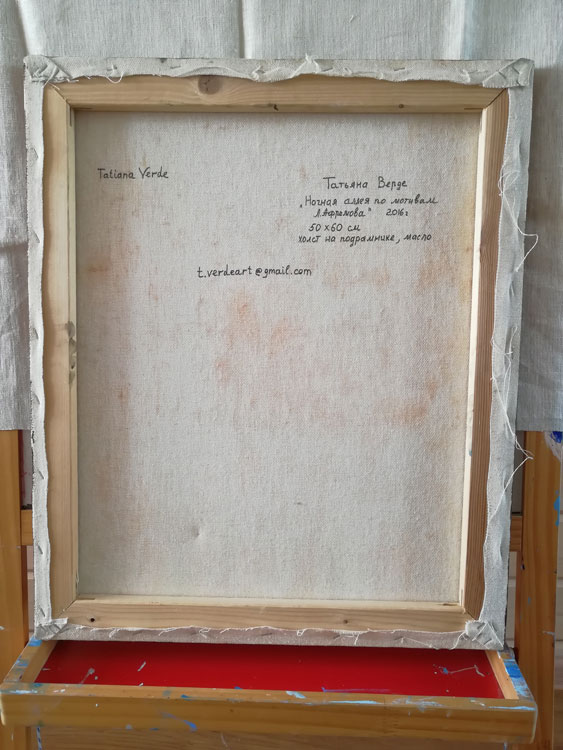 Tatiana Verde
Татьяна Верде
„Ночная аллея по мотивам
Л.Афремова" 2016г
50 х 60 см
холст на подрамнике, масло
t.verdeart@gmail.com